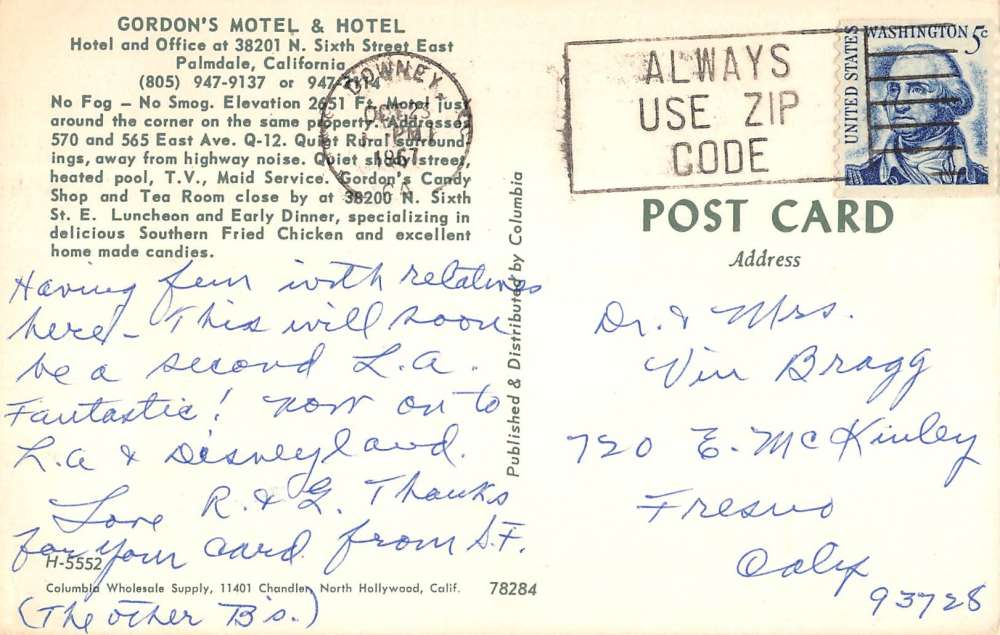 GORDON'S MOTEL & HOTEL
Hotel and Office at 38201 N. Sixth Street East
Palmdale, California
(805) 947-9137 or
No Fog – No Smog. Elevation 2651 Ft. Motel just
around the corner on the same property. Addresses
570 and 565 East Ave. Q-12. Quiet Rural surround-
ings, away from highway noise. Quiet shady street,
heated pool, T.V., Maid Service. Gordon's Candy
Shop and Tea Room close by at 38200 N. Sixth
St. E. Luncheon and Early Dinner, specializing in
delicious Southern Fried Chicken and excellent
home made candies.
Having fun with relatives
here – This will soon
be a second L.A.
Fantastic! Now on to
L.A & Disneyland.
Love R. & G. Thanks
for your card from S.F.
(The other B's.)
H-5552
Columbia Wholesale Supply, 11401 Chandler, North Hollywood, Calif.
78284
Published & Distributed by Columbia
DOWNEY
PM
1967
CA
ALWAYS
USE ZIP
CODE
UNITED STATES
WASHINGTON 5c
POST CARD
Address
Dr. & Mrs.
Vin Bragg
720 E. McKinley
Fresno
Calif
93728